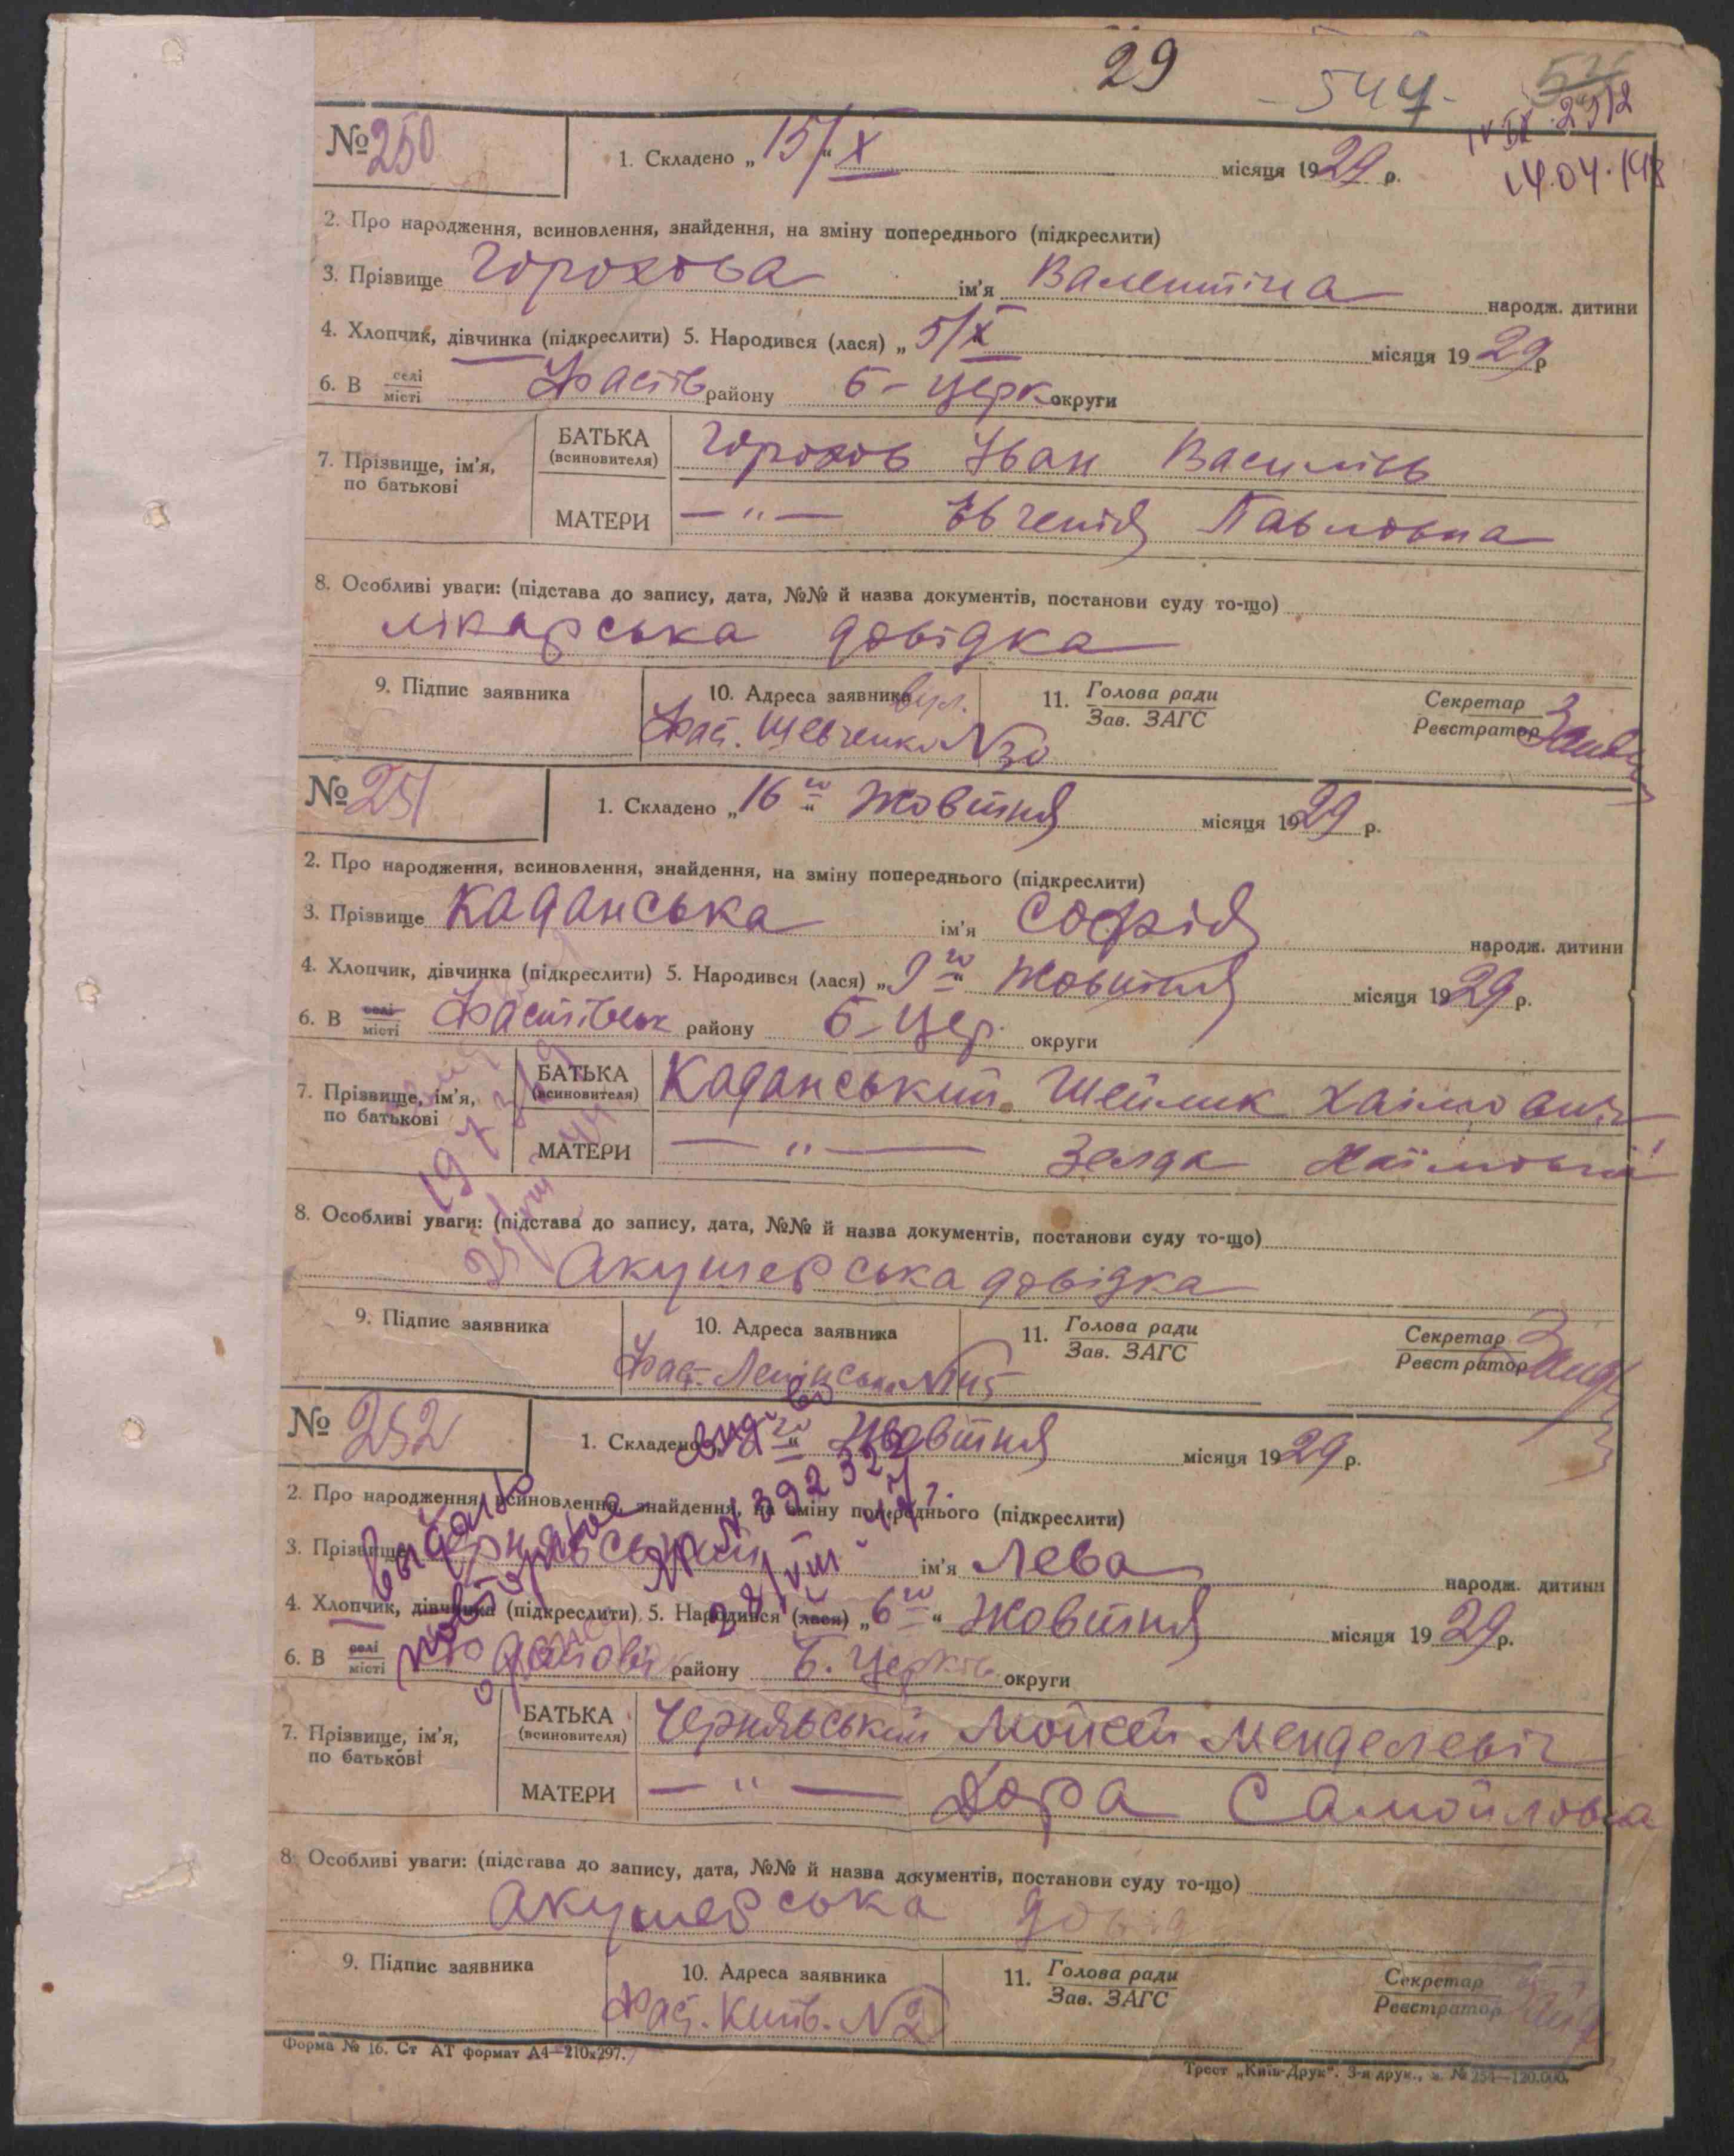 29
- 547 -
14.04.
№ 250
1. Складено „15/X“ місяця 1929 р.
2. Про народження, всиновлення, знайдення, на зміну попереднього (підкреслити)
3. Прізвище Горохова ім'я Валентіна народж. дитини
4. Хлопчик, дівчинка (підкреслити) 5. Народився (лася) „5/X місяця 1929 р
6. В селі місті Фастів району Б-Церк округи
7. Прізвище, ім'я, по батькові
БАТЬКА (всиновителя) Горохов Іван Василівь
МАТЕРИ — „ — Євгенія Павловна
8. Особливі уваги: (підстава до запису, дата, №№ й назва документів, постанови суду то-що)
лікарська довідка
9. Підпис заявника 10. Адреса заявника вул. 11. Голова ради Зав. ЗАГС Секретар Реєстратор
Фас. Шевченко N 30
№ 251
1. Складено „16го“ Жовтня місяця 1929 р.
2. Про народження, всиновлення, знайдення, на зміну попереднього (підкреслити)
3. Прізвище Каданська ім'я Софія народж. дитини
4. Хлопчик, дівчинка (підкреслити) 5. Народився (лася) „9го“ Жовтня місяця 1929 р.
6. В селі місті Фастівськ району Б-Цер. округи
7. Прізвище, ім'я, по батькові
БАТЬКА (всиновителя) Каданський Шейлик Хаімович
МАТЕРИ — „ — Зелда Хаїмовна
8. Особливі уваги: (підстава до запису, дата, №№ й назва документів, постанови суду то-що)
Акушерська довідка
9. Підпис заявника 10. Адреса заявника 11. Голова ради Зав. ЗАГС Секретар Реєстратор
Фаст. Ленінська N 45
№ 252
1. Складено го“ Жовтня місяця 1929 р.
2. Про народження, всиновлення, знайдення, на зміну попереднього (підкреслити)
3. Прізвище Чернявський ім'я Лева народж. дитини
4. Хлопчик, дівчинка (підкреслити) 5. Народився (лася) „6го“ Жовтня місяця 1929 р.
6. В селі місті району Б. Церків округи
7. Прізвище, ім'я, по батькові
БАТЬКА (всиновителя) Чернявський Мойсей Менделевіч
МАТЕРИ — „ — Дора Самойловна
8. Особливі уваги: (підстава до запису, дата, №№ й назва документів, постанови суду то-що)
Акушерська довід
9. Підпис заявника 10. Адреса заявника 11. Голова ради Зав. ЗАГС Секретар Реєстратор
Фас. Київ. N 2
Форма № 16. Ст АТ формат А4—210х297.
Трест „Київ-Друк“. 3-я друк., з. № 254—120.000.